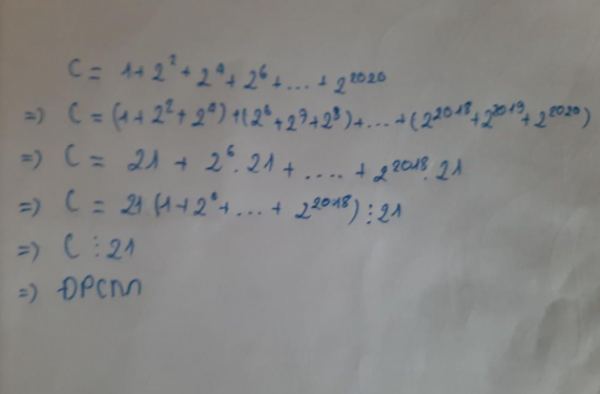 C = 1+2²+2⁴+2⁶+...+2²⁰²⁰
=) C = (1+2²+2⁴)+(2⁶+2⁷+2⁸)+...+(2²⁰¹⁸+2²⁰¹⁹+2²⁰²⁰)
=) C = 21 + 2⁶.21+....+2²⁰¹⁸.21
=) C = 21(1+2⁶+...+ 2²⁰¹⁸)⋮21
=) C⋮21
=) ĐPCM